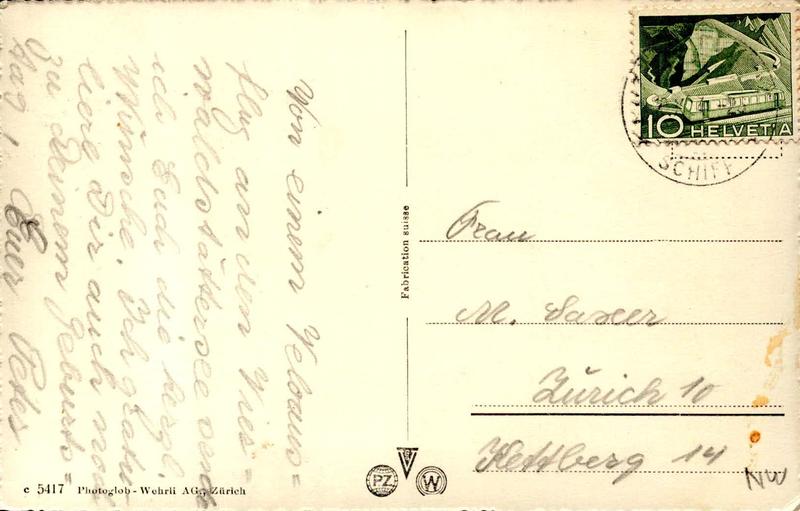 Von einem Veloaus=
flug an den Vier=
waldstättersee sende
ich Euch die herzl.
Wünsche. Ich gratu
liere Dir auch noch
zu Deinem Geburts=
tag! Euer Peter
Fabrication suisse
10 HELVETIA
SCHIFF
Frau
M. Saxer
Zürich 10
Kettberg 14
NW
PZ
W
c 5417 Photoglob-Wehrli AG., Zürich